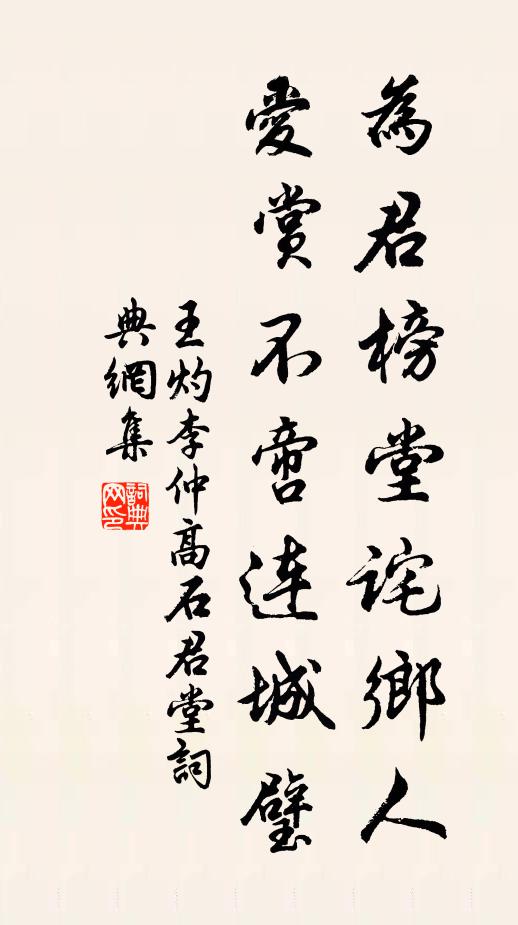 為君榜堂詫鄉人
愛賞不啻連城璧
王灼李仲高石君堂詞
典網集
詞典
网印